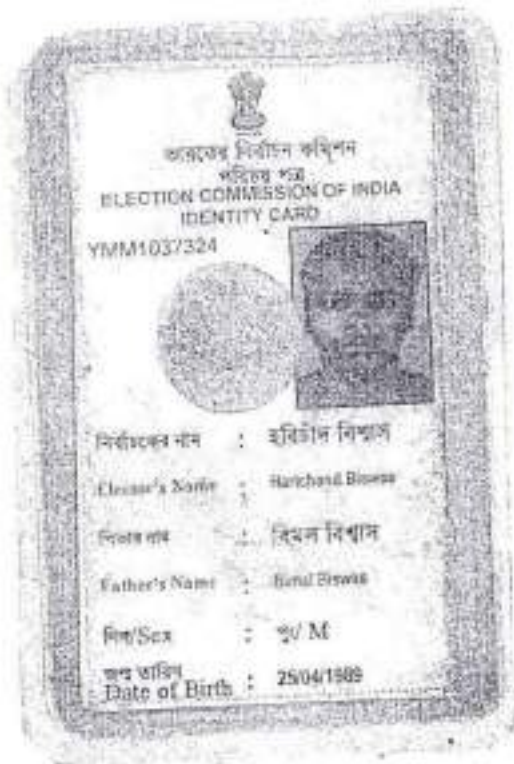 ভারতের নির্বাচন কমিশন
পরিচয় পত্র
ELECTION COMMISSION OF INDIA
IDENTITY CARD
YMM1037324
নির্বাচকের নাম : হরিচাঁদ বিশ্বাস
Elector's Name : Harichand Biswas
পিতার নাম : বিমল বিশ্বাস
Father's Name : Bimal Biswas
লিঙ্গ/Sex : পুং/ M
জন্ম তারিখ
Date of Birth : 25/04/1989